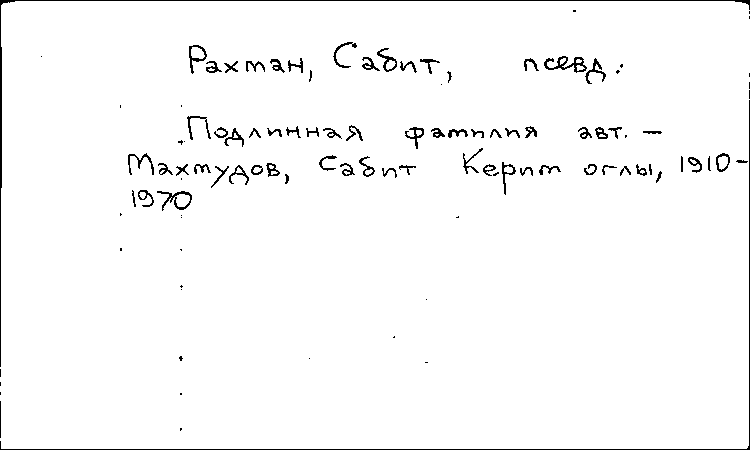 Рахман, Сабит, псевд.
Подлинная фамилия авт. —
Махмудов, Сабит Керим оглы, 1910-
1970